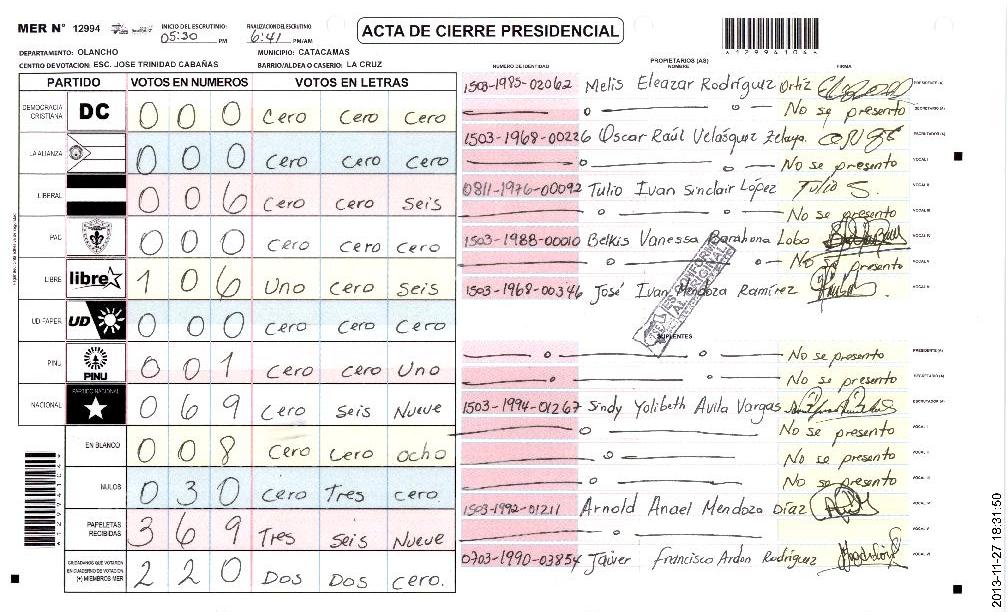 MER N° 12994 INICIO DEL ESCRUTINIO: 05:30 PM FINALIZACION DEL ESCRUTINIO: 6:41 PM/AM
ACTA DE CIERRE PRESIDENCIAL
DEPARTAMENTO: OLANCHO MUNICIPIO: CATACAMAS
CENTRO DE VOTACION: ESC. JOSE TRINIDAD CABAÑAS BARRIO/ALDEA O CASERIO: LA CRUZ
PARTIDO VOTOS EN NUMEROS VOTOS EN LETRAS
DEMOCRACIA CRISTIANA DC 0 0 0 Cero Cero Cero
LA ALIANZA 0 0 0 Cero Cero Cero
LIBERAL 0 0 6 Cero Cero Seis
PAC 0 0 0 Cero Cero Cero
LIBRE libre 1 0 6 Uno Cero Seis
UD FAPER UD 0 0 0 Cero Cero Cero
PINU PINU 0 0 1 Cero Cero Uno
NACIONAL PARTIDO NACIONAL 0 6 9 Cero Seis Nueve
EN BLANCO 0 0 8 Cero Cero ocho
NULOS 0 3 0 Cero Tres cero.
PAPELETAS RECIBIDAS 3 6 9 Tres Seis Nueve
CIUDADANOS QUE VOTARON EN CUADERNO DE VOTACION (+) MIEMBROS MER 2 2 0 Dos Dos cero.
PROPIETARIOS (AS)
NUMERO DE IDENTIDAD NOMBRE FIRMA
1503-1985-02062 Melis Eleazar Rodríguez Ortiz PRESIDENTE (A)
No se presento SECRETARIO (A)
1503-1968-00226 Oscar Raúl Velásquez Zelaya ESCRUTADOR (A)
No se presento VOCAL I
0811-1976-00092 Tulio Ivan Sinclair López Tulio S. VOCAL II
No se presento VOCAL III
1503-1988-00010 Belkis Vanessa Barahona Lobo VOCAL IV
No se presento VOCAL V
1503-1968-00346 José Ivan Mendoza Ramírez VOCAL VI
ES CONFORME AL ORIGINAL
SUPLENTES
No se presento PRESIDENTE (A)
No se presento SECRETARIO (A)
1503-1994-01267 Sindy Yolibeth Avila Vargas ESCRUTADOR (A)
No se presento VOCAL I
No se presento VOCAL II
No se presento VOCAL III
1503-1992-01211 Arnold Anael Mendoza Díaz VOCAL IV
VOCAL V
0703-1990-03854 Javier Francisco Ardon Rodríguez VOCAL VI
2013-11-27 18:31:50